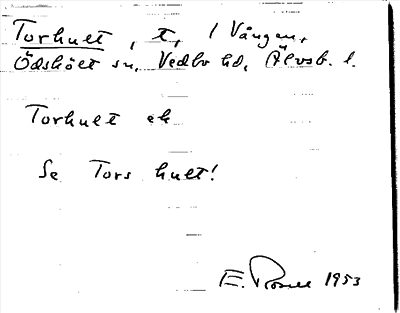 Torhult, t, / Vången,
Ödskölt sn, Vedbo hd, Älvsb. l.
Torhult ek
Se Tors hult!
E. 1953